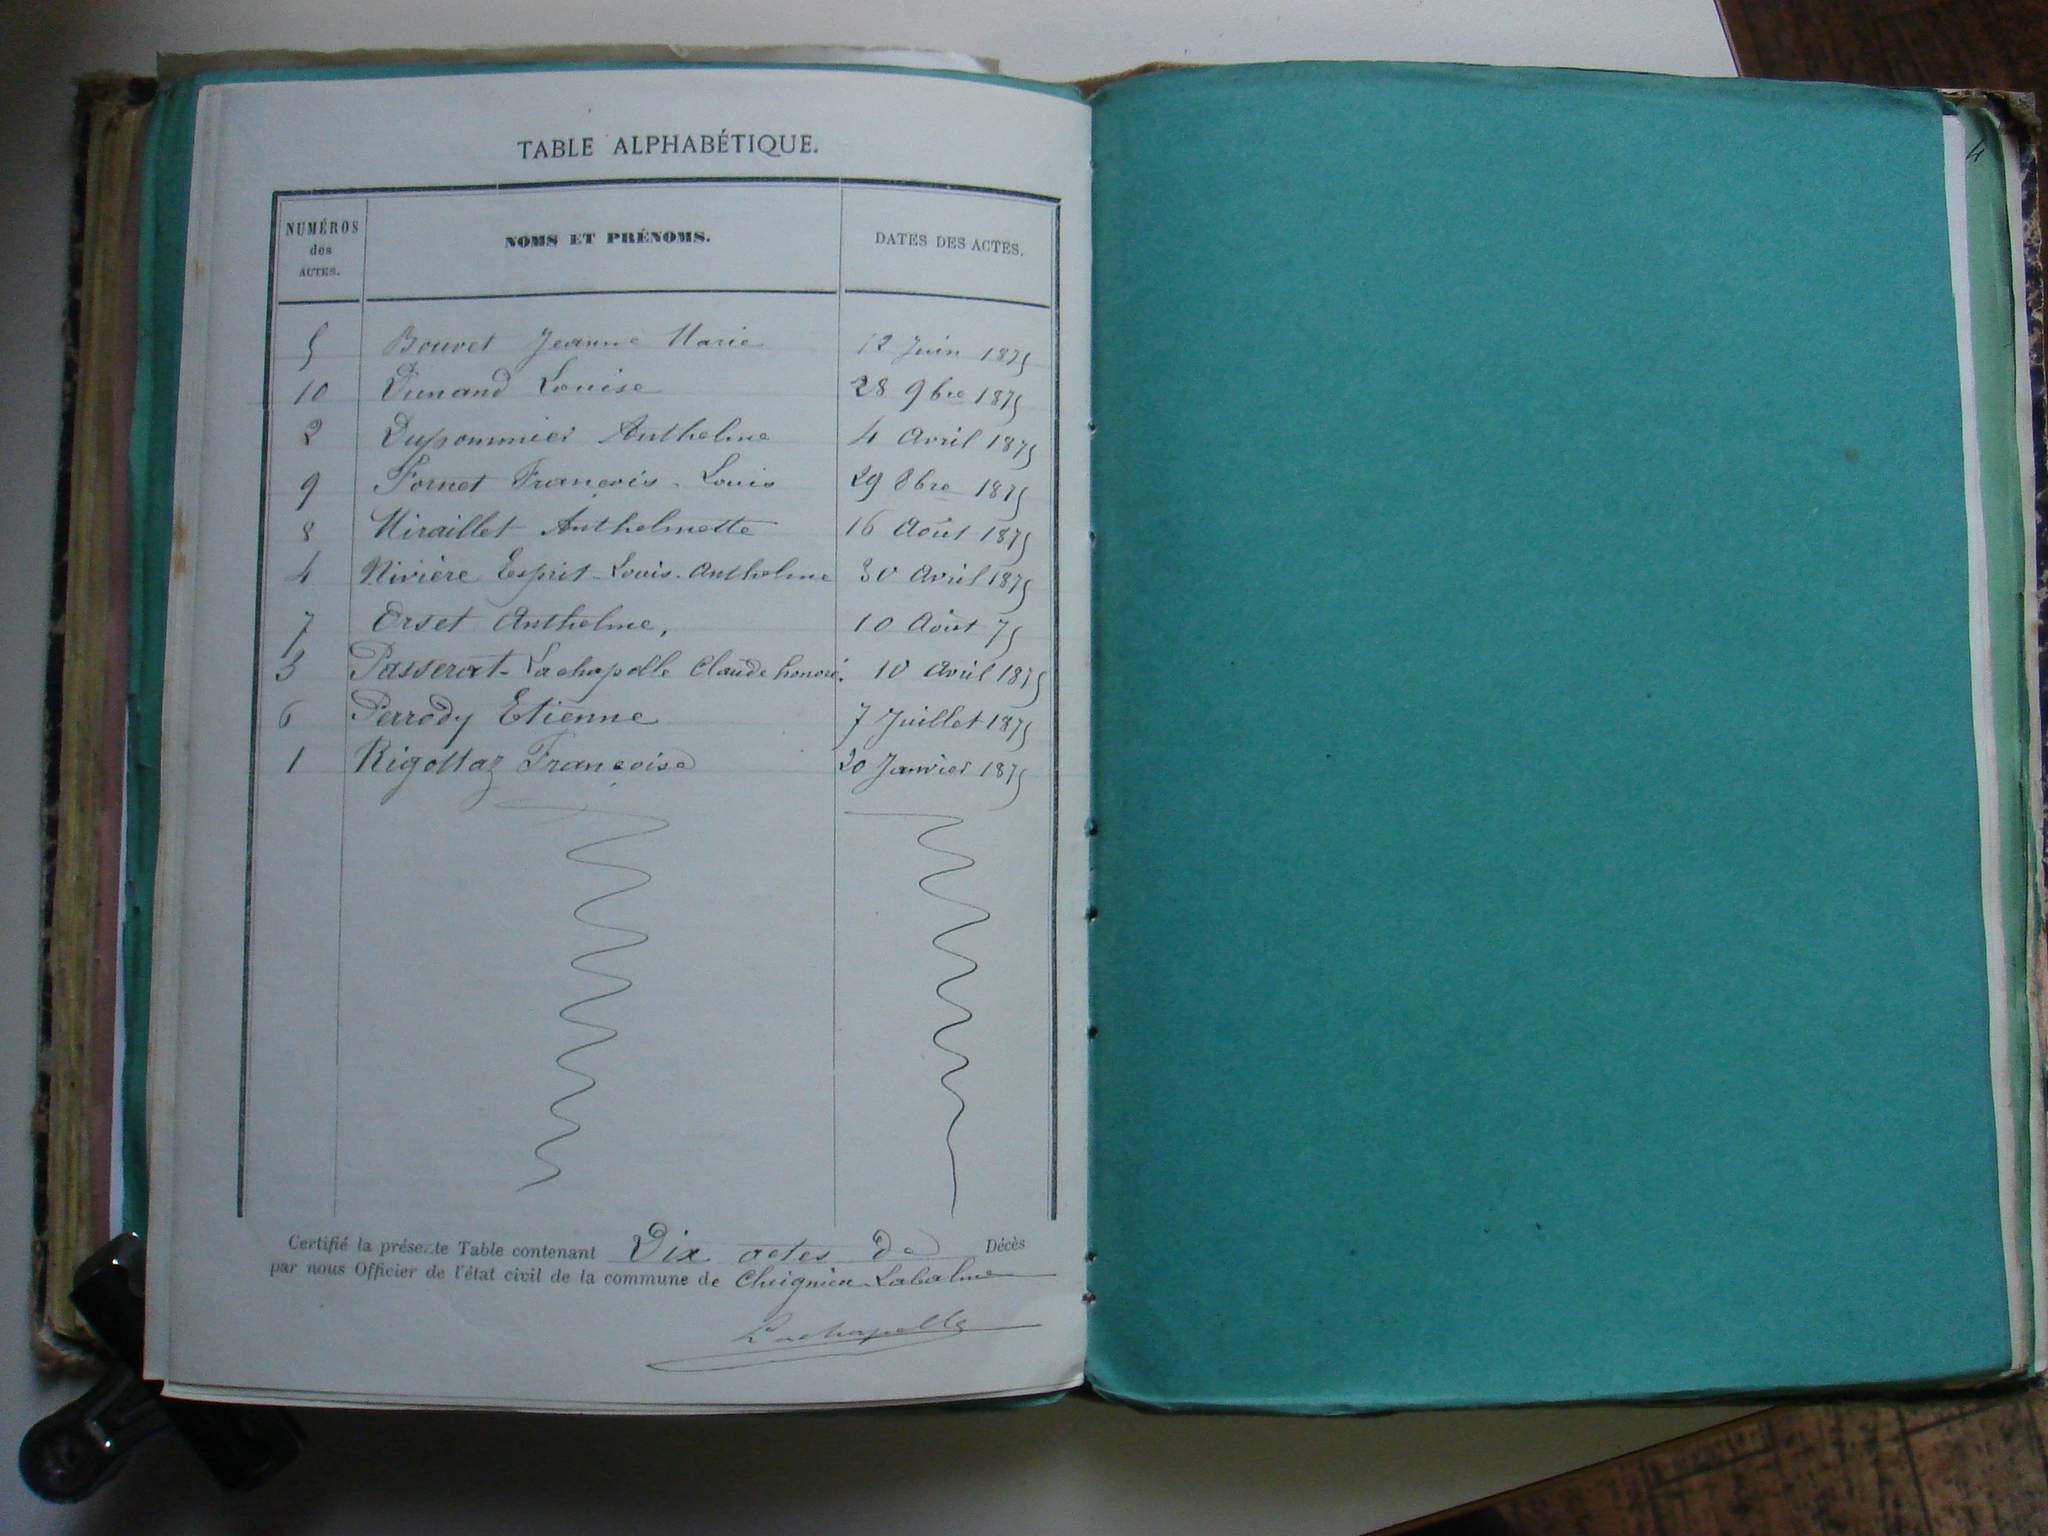 TABLE ALPHABÉTIQUE.
NUMÉROS des ACTES. NOMS ET PRÉNOMS. DATES DES ACTES.
5 Bouvet Jeanne Marie 12 Juin 1875
10 Dunand Louise 28 9bre 1875
2 Dupommier Anthelme 4 Avril 1875
9 Fornet François-Louis 29 8bre 1875
8 Miraillet Anthelmette 16 Août 1875
4 Nivière Esprit-Louis-Anthelme 30 Avril 1875
7 Orset Anthelme, 10 Août 75
3 Passerat-Lachapelle Claude honoré. 10 Avril 1875
6 Perrody Etienne 7 Juillet 1875
1 Rigollaz Françoise 20 Janvier 1875
Certifié la présente Table contenant Dix actes de Décès
par nous Officier de l'état civil de la commune de Cheignieu-Labalme
Lachapelle
4